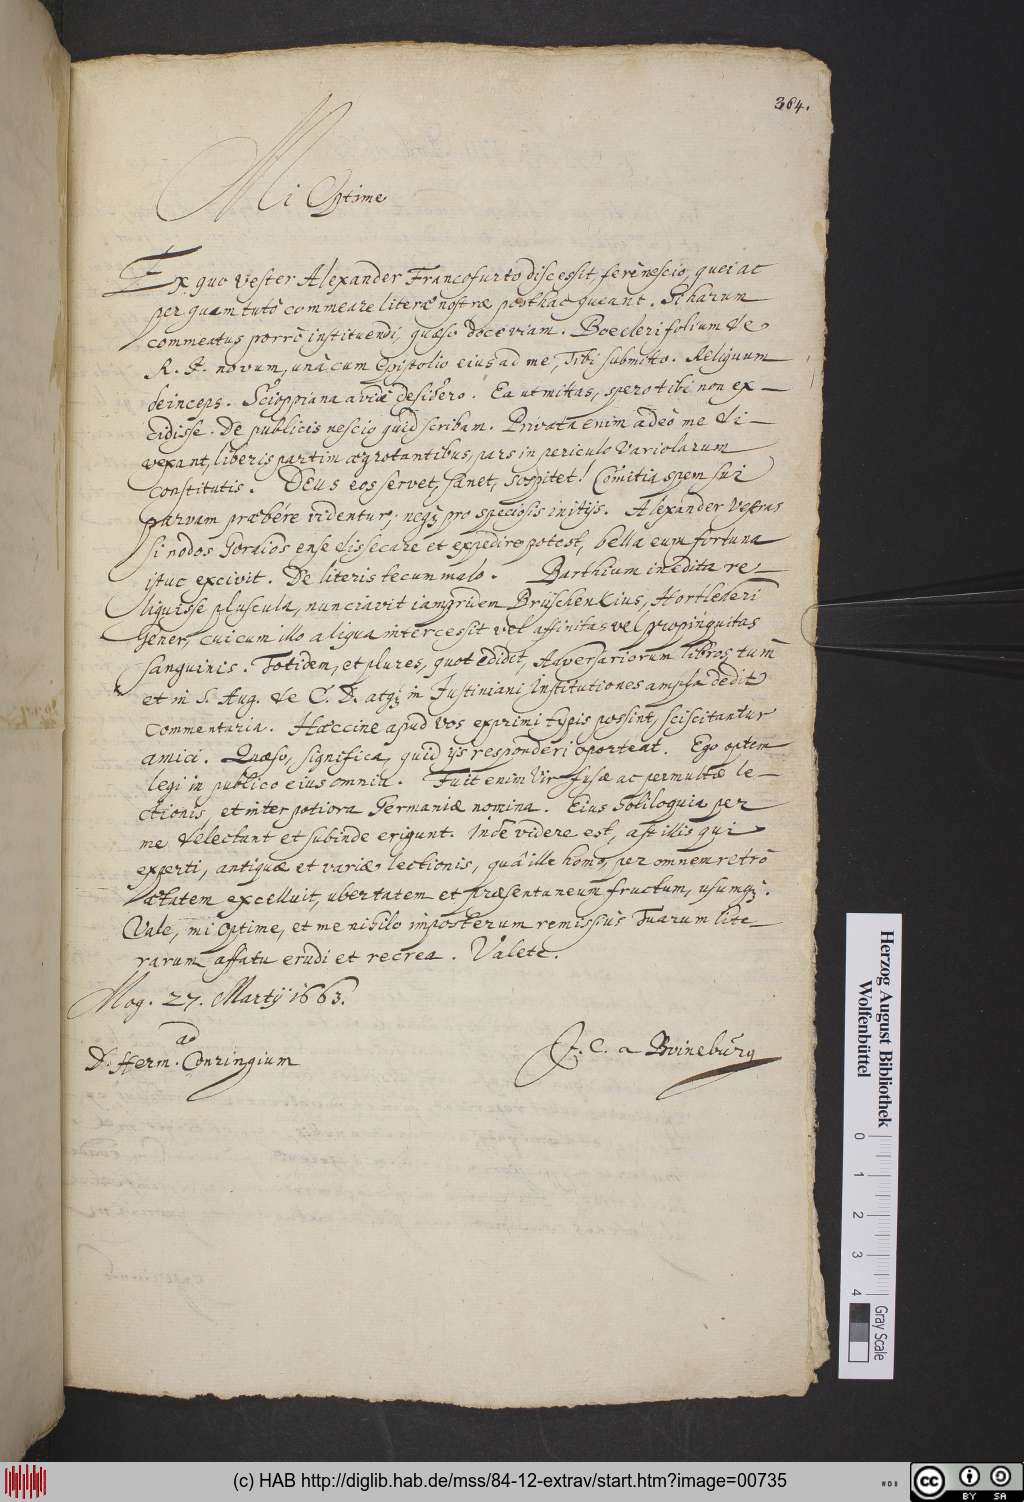 364.
Mi Optime
Ex quo Vester Alexander Francofurto discessit, ferè nescio, quei ac
per quam tutò commeare literæ nostræ posthac queant. Si harum
commeatus porrò instituendi, quæso doce viam. Boecleri folium de
R. I. novum, unà cum Epistolio eius ad me, Tibi submitto. Reliquum
deinceps. Scioppiana avidè desidero. Ea ut mittas, spero tibi non ex-
cidisse. De publicis nescio quid scribam. Privata enim adeò me di-
vexant, liberis partim ægrotantibus, pars in periculo Variolarum
constitutis. DEUS eos servet, sanet, sospitet! Comitia spem sui
parvam præbére videntur; neqз pro speciosis initijs. Alexander Vestras
si nodos Gordios ense dissecare et expedire potest, bella eum fortuna
istuc excivit. De literis tecum malo. Barthium inedita re-
liquisse pluscula, nunciavit iampridem Brüschenkius, Hortlederi
Gener, cui cum illo aliqua intercessit vel affinitas vel propinquitas
sanguinis. Totidem, et plures, quot edidit, Adversariorum libros, tum
et in S. Aug. de C. D. atqз in Justiniani Institutiones ampla dedit
Commentaria. Hæccine apud vos exprimi typis possint, sciscitantur
amici. Quæso, significa, quid ijs responderi oporteat. Ego optem
legi in publico eius omnia. Fuit enim Vir fusæ ac permultæ le-
ctionis, et inter potiora Germaniæ nomina. Eius Soliloquia per
me delectant et subinde erigunt. Inde videre est, ast illis qui
experti, antiquæ et variæ lectionis, quâ ille homo, per omnem retrò
ætatem excelluit, ubertatem et præsentaneum fructum, usumqз.
Vale, mi Optime, et me nihilo imposterum remissius Tuarum lite-
rarum affatu erudi et recrea. Valete.
Mog. 27. Martij 1663.
ad
D. Herm. Conringium
J. C. a Boineburg
Herzog August Bibliothek
Wolfenbüttel
0 1 2 3 4
Gray Scale
(c) HAB http://diglib.hab.de/mss/84-12-extrav/start.htm?image=00735
cc BY SA